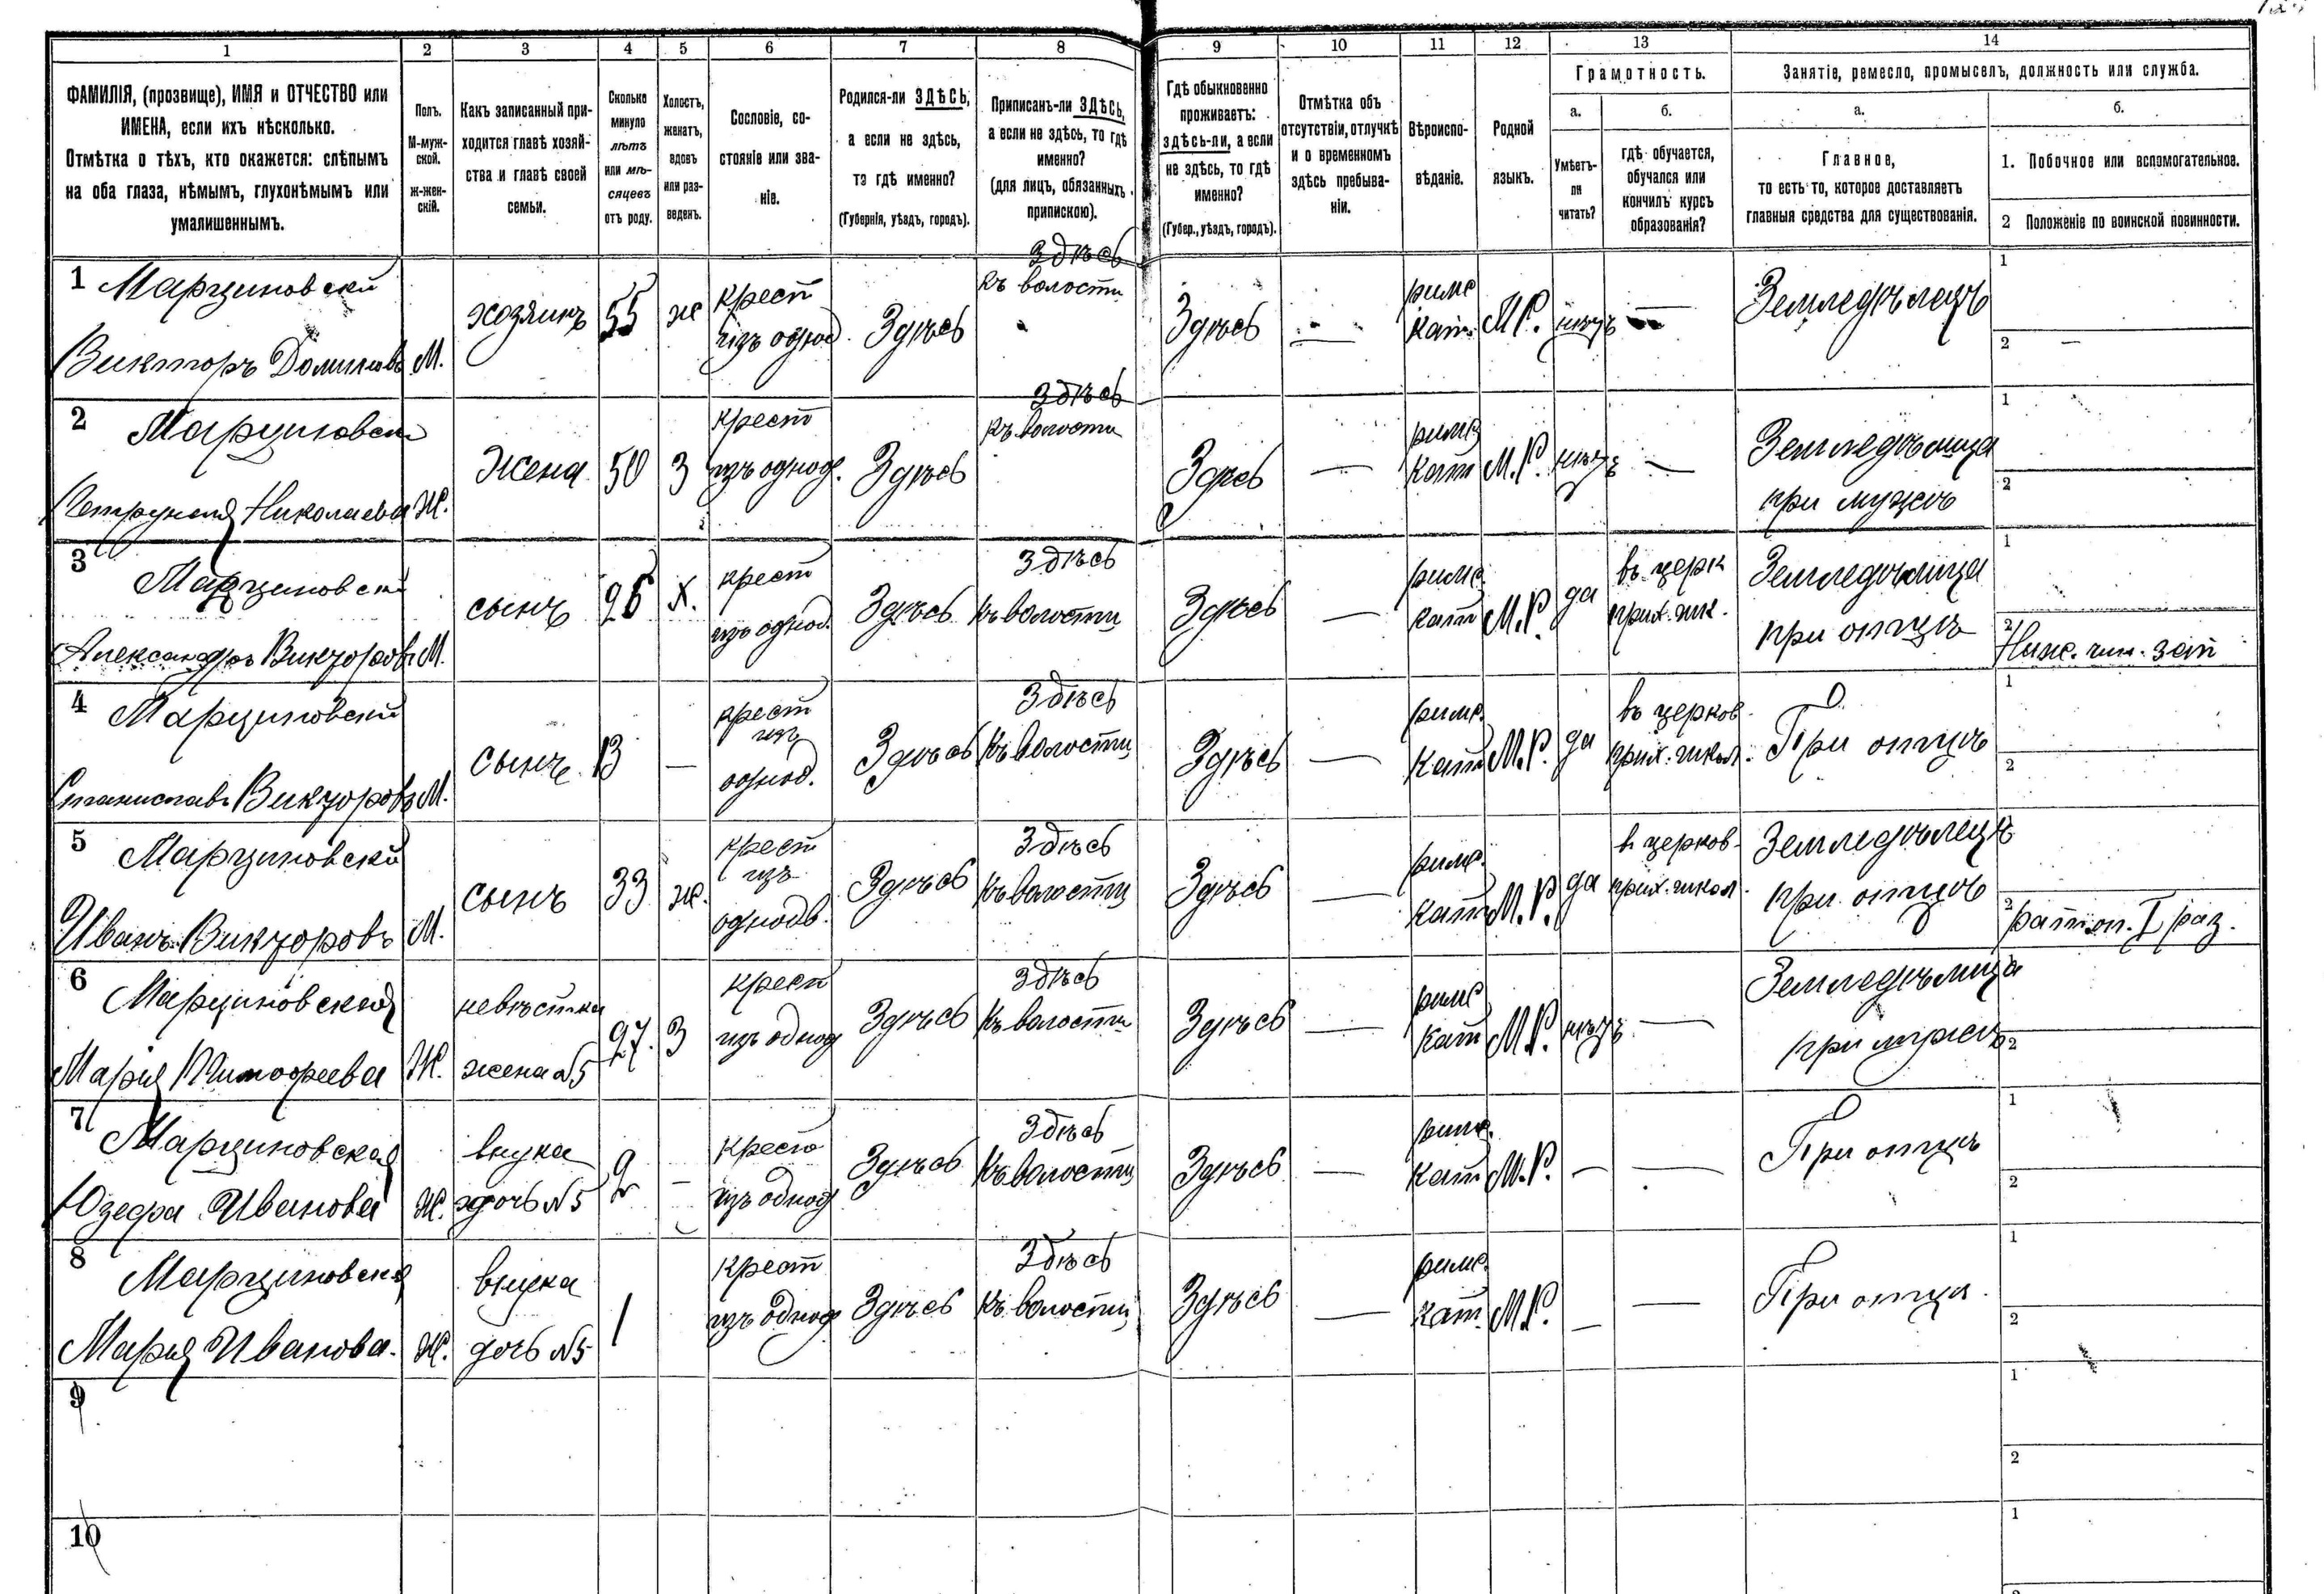 1 2 3 4 5 6 7 8 9 10 11 12 13 14
ФАМИЛІЯ, (прозвище), ИМЯ и ОТЧЕСТВО или
ИМЕНА, если ихъ нѣсколько.
Отмѣтка о тѣхъ, кто окажется: слѣпымъ
на оба глаза, нѣмымъ, глухонѣмымъ или
умалишеннымъ.
Полъ.
М-муж-
ской.
ж-жен-
скій.
Какъ записанный при-
ходится главѣ хозяй-
ства и главѣ своей
семьи.
Сколько
минуло
лѣтъ
или мѣ-
сяцевъ
отъ роду.
Холостъ,
женатъ,
вдовъ
или раз-
веденъ.
Сословіе, со-
стояніе или зва-
ніе.
Родился-ли ЗДѢСЬ,
а если не здѣсь,
то гдѣ именно?
(Губернія, уѣздъ, городъ).
Приписанъ-ли ЗДѢСЬ,
а если не здѣсь, то гдѣ
именно?
(для лицъ, обязанныхъ
припискою).
Гдѣ обыкновенно
проживаетъ:
здѣсь-ли, а если
не здѣсь, то гдѣ
именно?
(Губер., уѣздъ, городъ).
Отмѣтка объ
отсутствіи, отлучкѣ
и о временномъ
здѣсь пребыва-
ніи.
Вѣроиспо-
вѣданіе.
Родной
языкъ.
Грамотность.
а.
Умѣетъ-
ли
читать?
б.
гдѣ обучается,
обучался или
кончилъ курсъ
образованія?
Занятіе, ремесло, промыселъ, должность или служба.
а.
Главное,
то есть то, которое доставляетъ
главныя средства для существованія.
б.
1. Побочное или вспомогательное.
2 Положеніе по воинской повинности.
1 Марциновскій
Викторъ Доминиковъ
М.
хозяинъ
55
ж
крест
изъ однод.
Здѣсь
Здѣсь
къ волости
Здѣсь
—
римс
кат.
М.Р.
нѣтъ
—
Земледѣлецъ
1
2 —
2 Марциновская
Петрунеля Николаева
Ж.
Жена
50
З
крест
изъ однод.
Здѣсь
Здѣсь
къ волости
Здѣсь
—
римс
кат
М.Р.
нѣтъ
—
Земледѣлица
при мужѣ
1
2
3 Марциновскій
Александръ Викторовъ
М.
сынъ
26
Х.
крест
изъ однод.
Здѣсь
Здѣсь
къ волости
Здѣсь
—
римс.
кат
М.Р.
да
въ церк
прих. шк.
Земледѣлица
при отцѣ
1
2 Ниж. чин. зап
4 Марциновскій
Станиславъ Викторовъ
М.
сынъ
13
—
крест
изъ
однод.
Здѣсь
Здѣсь
къ волости
Здѣсь
—
римс.
кат
М.Р.
да
въ церков.
прих. школ.
При отцѣ
1
2
5 Марциновскій
Иванъ Викторовъ
М.
сынъ
33
ж.
крест
изъ
однодв.
Здѣсь
Здѣсь
къ волости
Здѣсь
—
римс.
кат
М.Р.
да
в церков.
прих. школ.
Земледѣлецъ
при отцѣ
2 рат. оп. I раз.
6 Марциновская
Марія Тимофеева
Ж.
невѣстка
жена №5
27.
З
крест
изъ однод
Здѣсь
Здѣсь
къ волости
Здѣсь
—
римс
кат
М.Р.
нѣтъ
—
Земледѣлица
при мужѣ
2
7 Марциновская
Юзефа Иванова
Ж.
внука
дочь №5
2
—
крест
изъ однод
Здѣсь
Здѣсь
къ волости
Здѣсь
—
римс.
кат
М.Р.
—
—
При отцѣ
1
2
8 Марциновская
Марья Иванова.
Ж.
внука
дочь №5
1
крест
изъ однод
Здѣсь
Здѣсь
къ волости
Здѣсь
—
римс.
кат.
М.Р.
—
—
При отца.
1
2
9
1
2
10
1